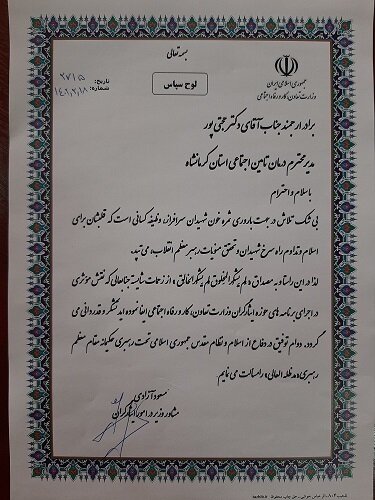 بسمه تعالی
جمهوری اسلامی ایران
وزارت تعاون، کار و رفاه اجتماعی
لوح سپاس
تاریخ:
شماره:
برادر ارجمند جناب آقای دکتر حجتی پور
مدیر محترم درمان تامین اجتماعی استان کرمانشاه
با سلام و احترام
بی شک تلاش در جهت باروری ثمره خون شهیدان سرافراز، وظیفه کسانی است که قلبشان برای
اسلام و تداوم راه سرخ شهیدان و تحقق منویات رهبر معظم انقلاب، می تپد.
لذا در این راستا و به مصداق «من لم یشکر المخلوق لم یشکر الخالق» از زحمات شایسته جنابعالی که نقش مؤثری
در اجرای برنامه های حوزه ایثارگران وزارت تعاون، کار و رفاه اجتماعی ایفا نموده اید تشکر و قدردانی می
گردد. دوام توفیق در دفاع از اسلام و نظام مقدس جمهوری اسلامی تحت رهبری حکیمانه مقام معظم
رهبری «مدظله العالی» را مسألت می نمایم
مسعود آزادی
مشاور وزیر در امور ایثارگران